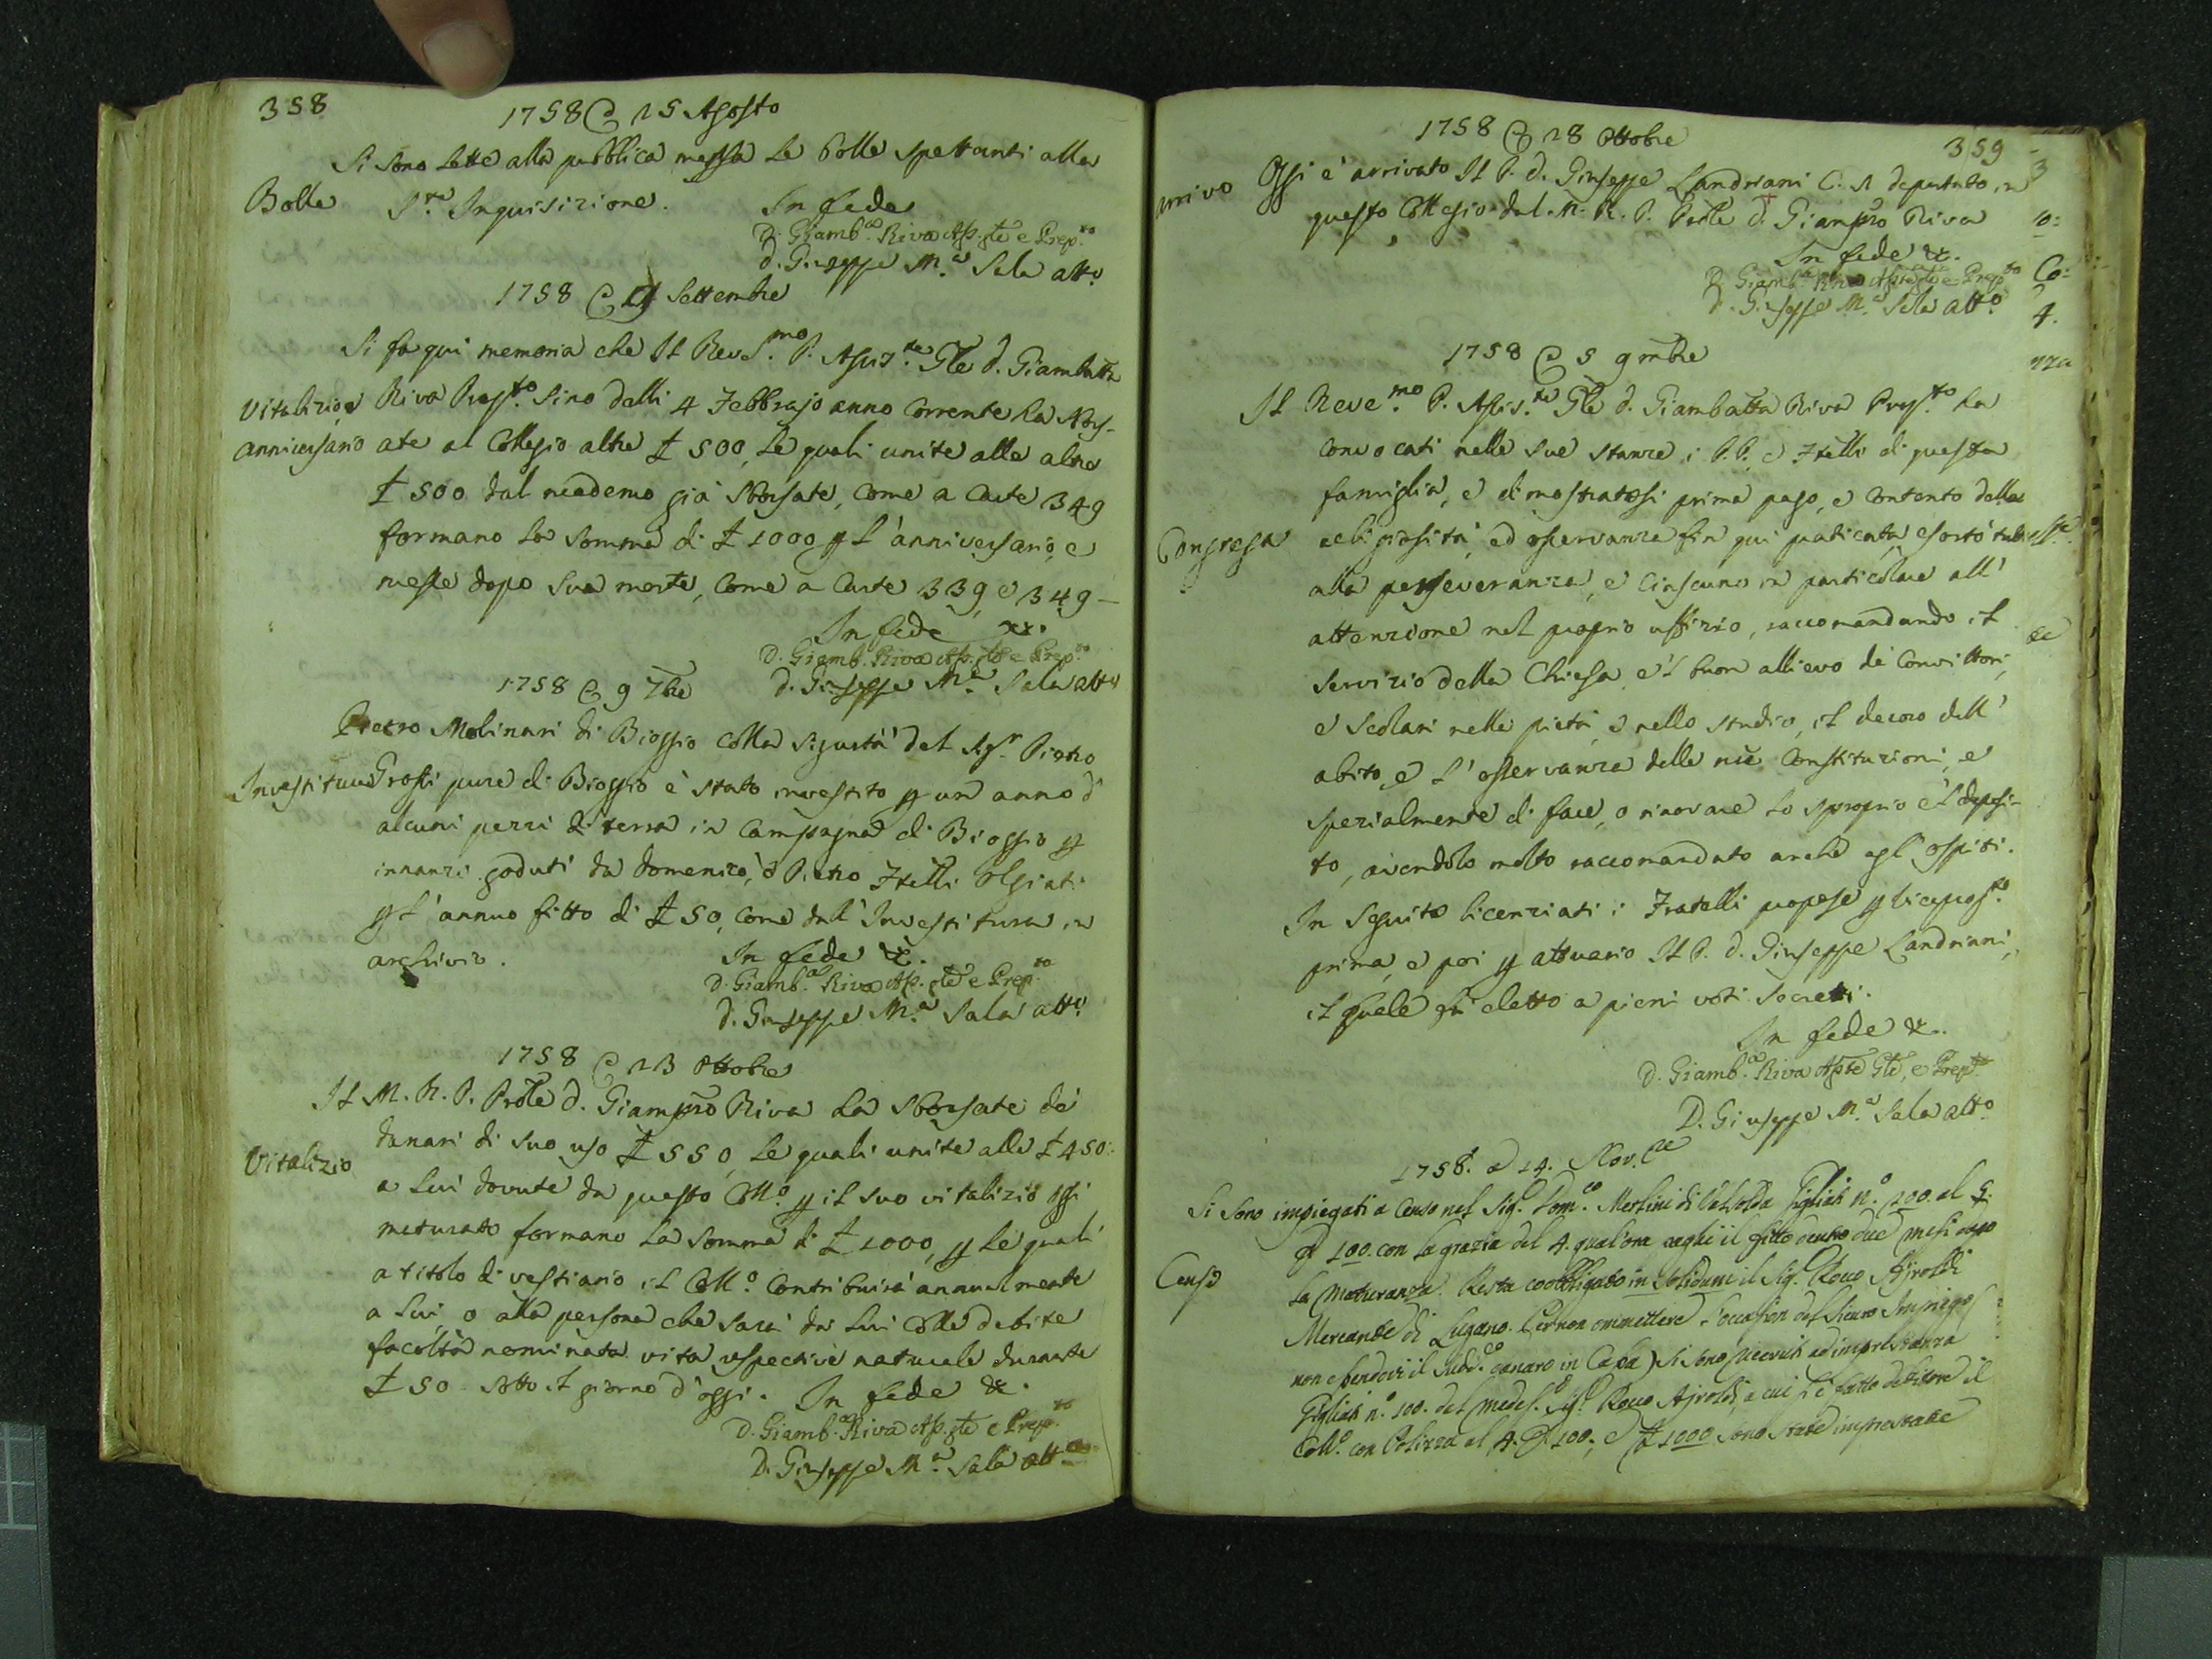 358
1758 @ 25 Agosto
Si sono lette alla pubblica messa le bolle spettanti alla
Bolle S.ta Inquisizione. In fede
D. Giamb.a Riva Ass. gle e Prep.to
d. Giuseppe M.a Sala att.o
1758 @ Settembre
Si fa qui memoria che Il Rev.mo P. Assis.te Gle d. Giambatta
Vitalizio e Riva Prep.to sino delli 4 Febbrajo anno corrente ha sbors-
anniversario ate al Collegio altre £ 500, le quali unite alle altre
£ 500 dal medemo già sborsate, come a Carte 349
formano la somma di £ 1000 p l'anniversario, e
messe dopo sua morte, come a Carte 339, e 349 —
In fede &.
D. Giamb. Riva Ass. gle e Prep.to
1758 @ 9 7bre d. Giuseppe M.a Sala att.o
Pietro Molinari di Bioggio colla sigurtà del Sig.r Pietro
Investitura Grossi pure di Bioggio è stato investito p un anno d'
alcuni pezzi di terra in Campagna di Bioggio p
innanzi goduti da Domenico, e Pietro Ftelli Olgiati
p l'annuo fitto di £ 50, come dall'Investitura in
archivio. In fede &.
D. Giamb.a Riva Ass. gle e Prep.to
d. Giuseppe M.a Sala att.o
1758 @ 23 Ottobre
Il M. R. P. Prole d. Giampro Riva ha sborsate de'
danari di suo uso £ 550, le quali unite alle £ 450:
Vitalizio a lui dovute da questo Coll.o p il suo vitalizio oggi
maturato formano la somma di £ 1000, p le quali
a titolo di vestiario il Coll.o contribuirà annualmente
a lui, o alla persona che sarà da lui colle debite
facoltà nominata vita respective naturale durante
£ 50 sotto il giorno d'oggi. In fede &.
D. Giamb.a Riva Ass. gle e Prep.to
D. Giuseppe M.a Sala att.o
359
1758 @ 28 Ottobre
arrivo Oggi è arrivato Il P. d. Giuseppe Landriani C. R. deputato in
questo Collegio dal M. R. P. Prole d. Giampro Riva
In fede &.
D. Giamb.a Riva Assis.te gle e Prep.to
d. Giuseppe M.a Sala att.o
1758 @ 5 9mbre
Il Reve.mo P. Assis.te Gle d. Giambatta Riva Prep.to ha
convocati nelle sue stanze i P.P. e Ftelli di questa
famiglia, e dimostratosi prima pago, e contento della
Congrega religiosità, ed osservanza fin qui praticata, esortò tutti
alla perseveranza, e ciascuno in particolare all'
attenzione nel proprio uffizio, raccomandando il
servizio della Chiesa, e 'l buon allievo de' Convittori,
e Scolari nella pietà, e nello studio, il decoro dell'
abito, e l'osservanza delle nre Constituzioni, e
spezialmente di fare, o rinovare lo sproprio e 'l deposi-
to, avendolo molto raccomandato anche agl'ospiti.
In seguito licenziati i Fratelli propose p viceprep.to
prima, e poi p attuario Il P. d. Giuseppe Landriani,
il quale fu eletto a pieni voti secreti.
In fede &.
D. Giamb.a Riva Asste Gle, e Prep.to
D. Giuseppe M.a Sala att.o
1758. a 14. Nov.bre
Si sono impiegati a Censo nel Sig.r Dom.co Merlini di Valsolda Gigliati n.o 200. al 5.
p 100. con la grazia del 4. qualora paghi il fitto dentro due mesi dopo
Censo la maturanza. Resta coobbligato in solidum il Sig.r Rocco Airoldi
Mercante di Lugano. Per non ommettere l'occasion del sicuro Impiego (
non essendovi il sudd.o danaro in Cassa) si sono ricevuti ad imprestanza
Gigliati n.o 100. del medes.o Sig.r Rocco Ajroldi, a cui s'è fatto debitore il
Coll.o con Polizza al 4. p 100.; e £ 1000 sono state imprestate